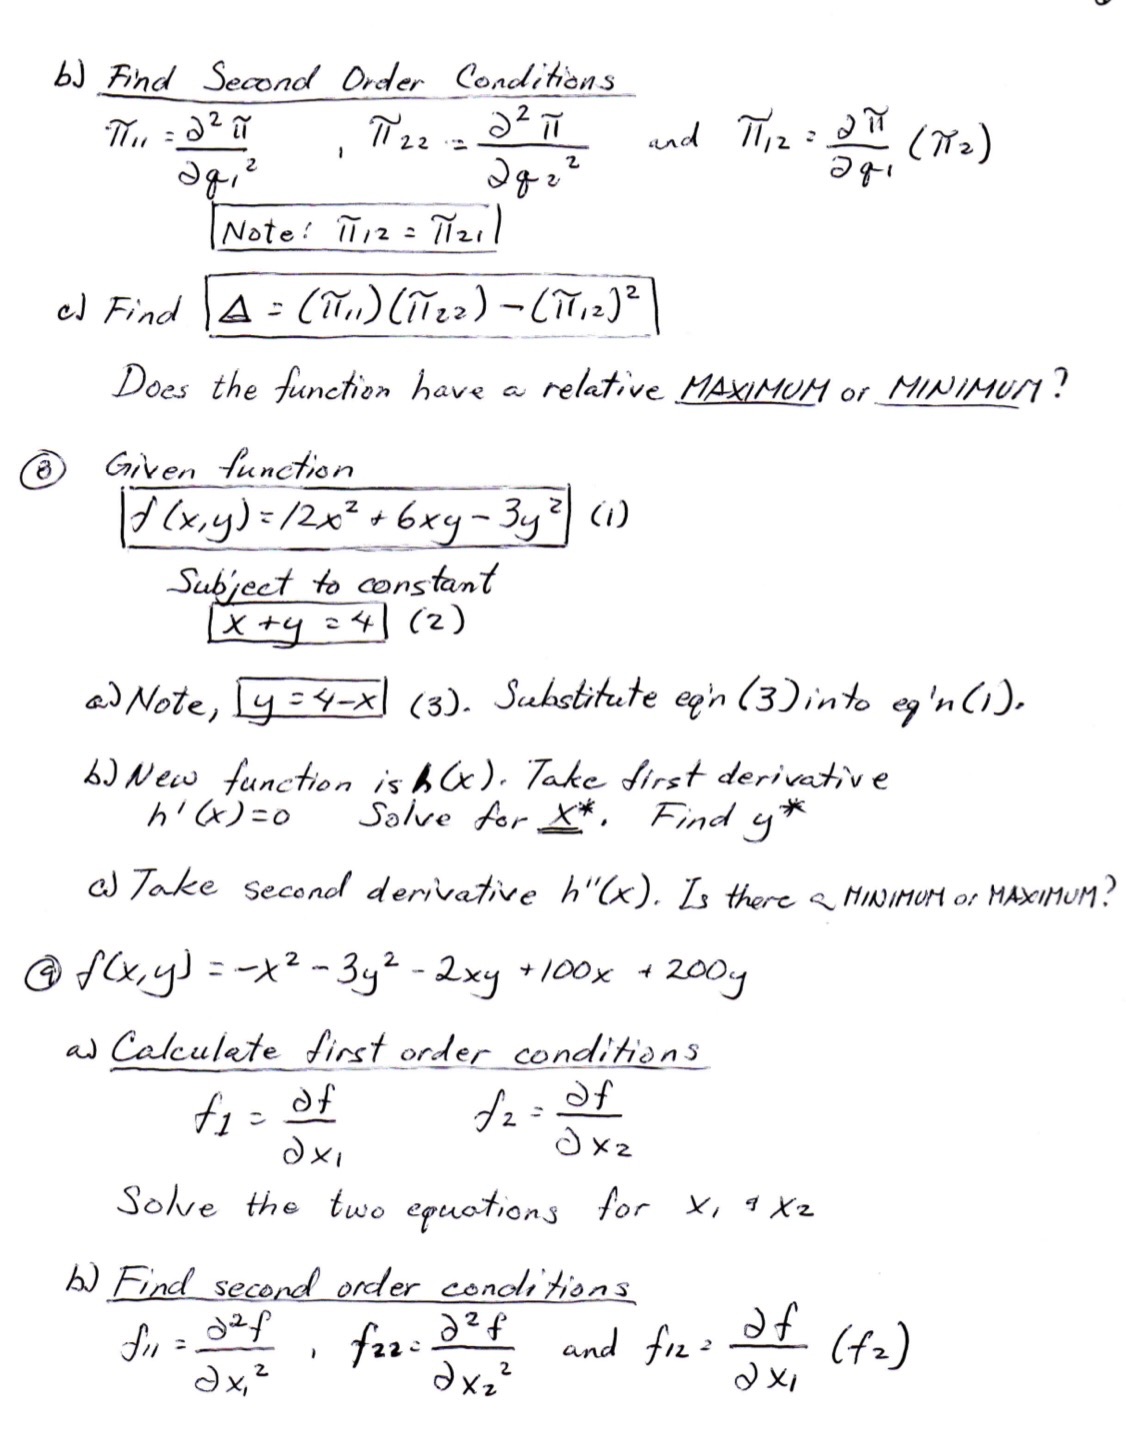 b) Find Second Order Conditions
π₁₁ = ∂²π/∂q₁² , π₂₂ = ∂²π/∂q₂² and π₁₂ = ∂π/∂q₁ (π₂)
Note: π₁₂ = π₂₁
c) Find Δ = (π₁₁)(π₂₂) - (π₁₂)²
Does the function have a relative MAXIMUM or MINIMUM?
⑧ Given function
f(x,y) = 12x² + 6xy - 3y² (1)
Subject to constant
x + y = 4 (2)
a) Note, y = 4-x (3). Substitute eq'n (3) into eq'n (1).
b) New function is h(x). Take first derivative
h'(x)=0 Solve for x*. Find y*
c) Take second derivative h"(x). Is there a MINIMUM or MAXIMUM?
⑨ f(x,y) = -x² - 3y² - 2xy + 100x + 200y
a) Calculate first order conditions
f₁ = ∂f/∂x₁ f₂ = ∂f/∂x₂
Solve the two equations for x₁ & x₂
b) Find second order conditions
f₁₁ = ∂²f/∂x₁² , f₂₂ = ∂²f/∂x₂² and f₁₂ = ∂f/∂x₁ (f₂)